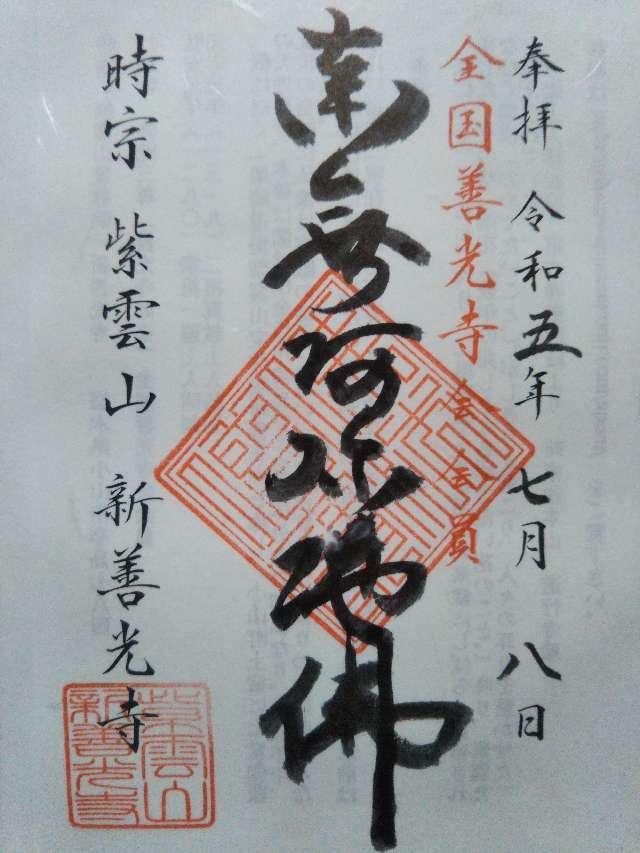 奉拝 令和五年 七月 八日
全国善光寺会会員
南無阿弥陀佛
時宗 紫雲山 新善光寺
紫雲山
新善光寺